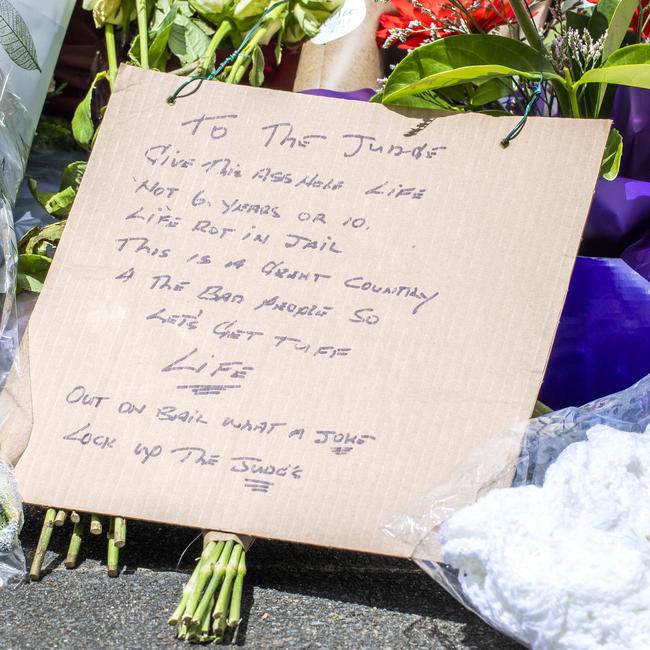 TO THE JUDGE
GIVE THIS ASS HOLE LIFE
NOT 6. YEARS OR 10.
LIFE ROT IN JAIL
THIS IS A GREAT COUNTRY
4 THE BAD PEOPLE SO
LET'S GET TUFF
LIFE
OUT ON BAIL WHAT A JOKE
LOCK UP THE JUDGE